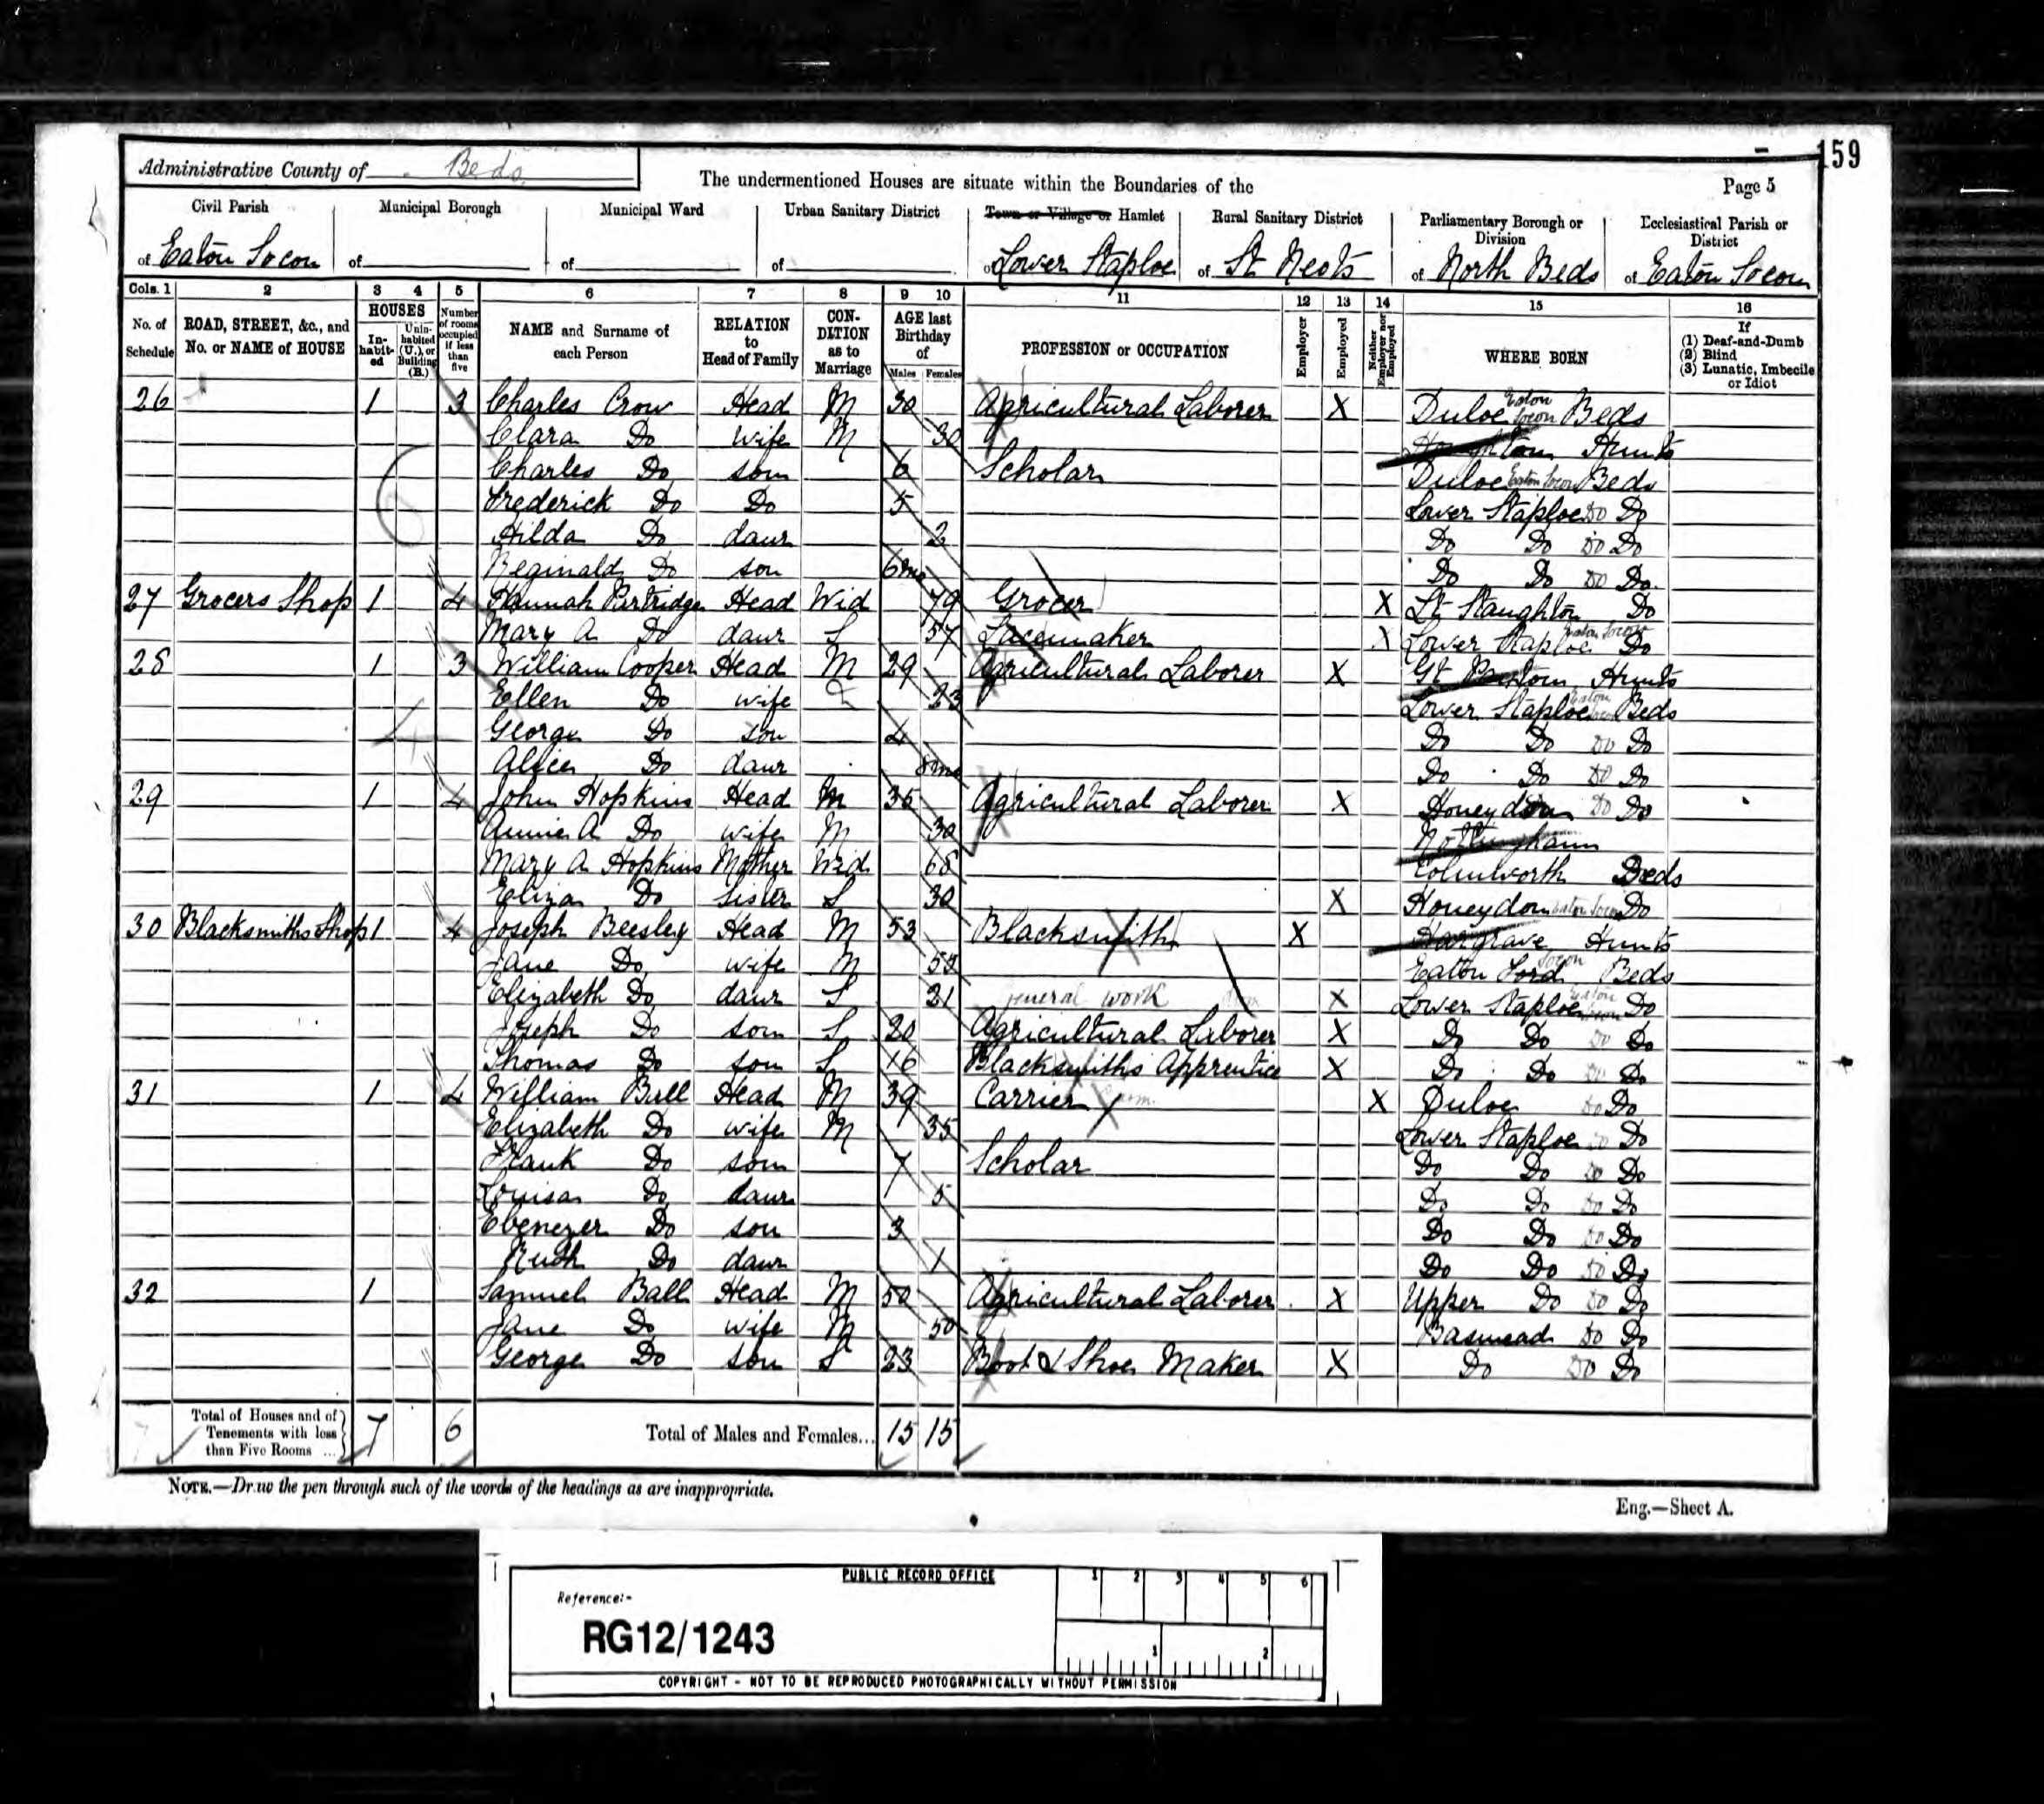 159
Administrative County of Beds
The undermentioned Houses are situate within the Boundaries of the
Page 5
Civil Parish
of Eaton Socon
Municipal Borough
of
Municipal Ward
of
Urban Sanitary District
of
Town or Village or Hamlet
of Lower Staploe
Rural Sanitary District
of St Neots
Parliamentary Borough or Division
of North Beds
Ecclesiastical Parish or District
of Eaton Socon
Cols. 1 2 3 4 5 6 7 8 9 10 11 12 13 14 15 16
No. of Schedule
ROAD, STREET, &c., and No. or NAME of HOUSE
HOUSES
In-habit-ed
Unin-habited (U.), or Building (B.)
Number of rooms occupied if less than five
NAME and Surname of each Person
RELATION to Head of Family
CON-DITION as to Marriage
AGE last Birthday of
Males Females
PROFESSION or OCCUPATION
Employer
Employed
Neither Employer nor Employed
WHERE BORN
If
(1) Deaf-and-Dumb
(2) Blind
(3) Lunatic, Imbecile or Idiot
26 1 3 Charles Crow Head M 30 Agricultural Laborer X Duloe Eaton Socon Beds
Clara Do wife M 30 Hunts
Charles Do son 6 Scholar Duloe Eaton Socon Beds
Frederick Do Do 5 Lower Staploe Do Do
Hilda Do daur 2 Do Do Do Do
Reginald Do son 6mo Do Do Do Do
27 Grocers Shop 1 4 Hannah Partridge Head Wid 79 Grocer X Lt Staughton Do
Mary A Do daur S 57 Lacemaker X Lower Staploe Eaton Socon Do
28 1 3 William Cooper Head M 29 Agricultural Laborer X Gt Paxton Hunts
Ellen Do wife 23 Lower Staploe Eaton Socon Beds
George Do son 4 Do Do Do Do
Alice Do daur 8mo Do Do Do Do
29 1 4 John Hopkins Head M 35 Agricultural Laborer X Honeydon Do Do
Annie A Do wife M 30 Nottingham
Mary A Hopkins Mother Wid 68 Colmworth Beds
Eliza Do sister S 30 X Honeydon Eaton Socon Do
30 Blacksmiths Shop 1 4 Joseph Beesley Head M 53 Blacksmith X Hargrave Hunts
Jane Do wife M 53 Eaton Ford Socon Beds
Elizabeth Do daur S 21 general work X Lower Staploe Eaton Socon Do
Joseph Do son S 20 Agricultural Laborer X Do Do Do Do
Thomas Do son S 16 Blacksmiths Apprentice X Do Do Do Do
31 1 4 William Ball Head M 39 Carrier X Duloe Do Do
Elizabeth Do wife M 35 Lower Staploe Do Do
Frank Do son 7 Scholar Do Do Do Do
Louisa Do daur 5 Do Do Do Do
Ebenezer Do son 3 Do Do Do Do
Ruth Do daur 1 Do Do Do Do
32 1 Samuel Ball Head M 50 Agricultural Laborer X Upper Do Do Do
Jane Do wife M 50 Basmead Do Do
George Do son S 23 Boot & Shoe Maker X Do Do Do
Total of Houses and of Tenements with less than Five Rooms ... 7 6 Total of Males and Females... 15 15
NOTE.—Draw the pen through such of the words of the headings as are inappropriate.
Eng.—Sheet A.
PUBLIC RECORD OFFICE
1 2 3 4 5 6
Reference:-
RG12/1243
1 2
COPYRIGHT - NOT TO BE REPRODUCED PHOTOGRAPHICALLY WITHOUT PERMISSION